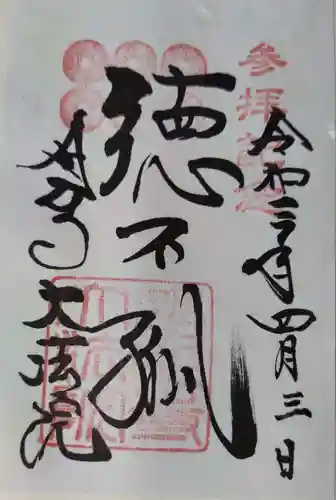 参拝記念
令和三年四月三日
徳不孤
大法院